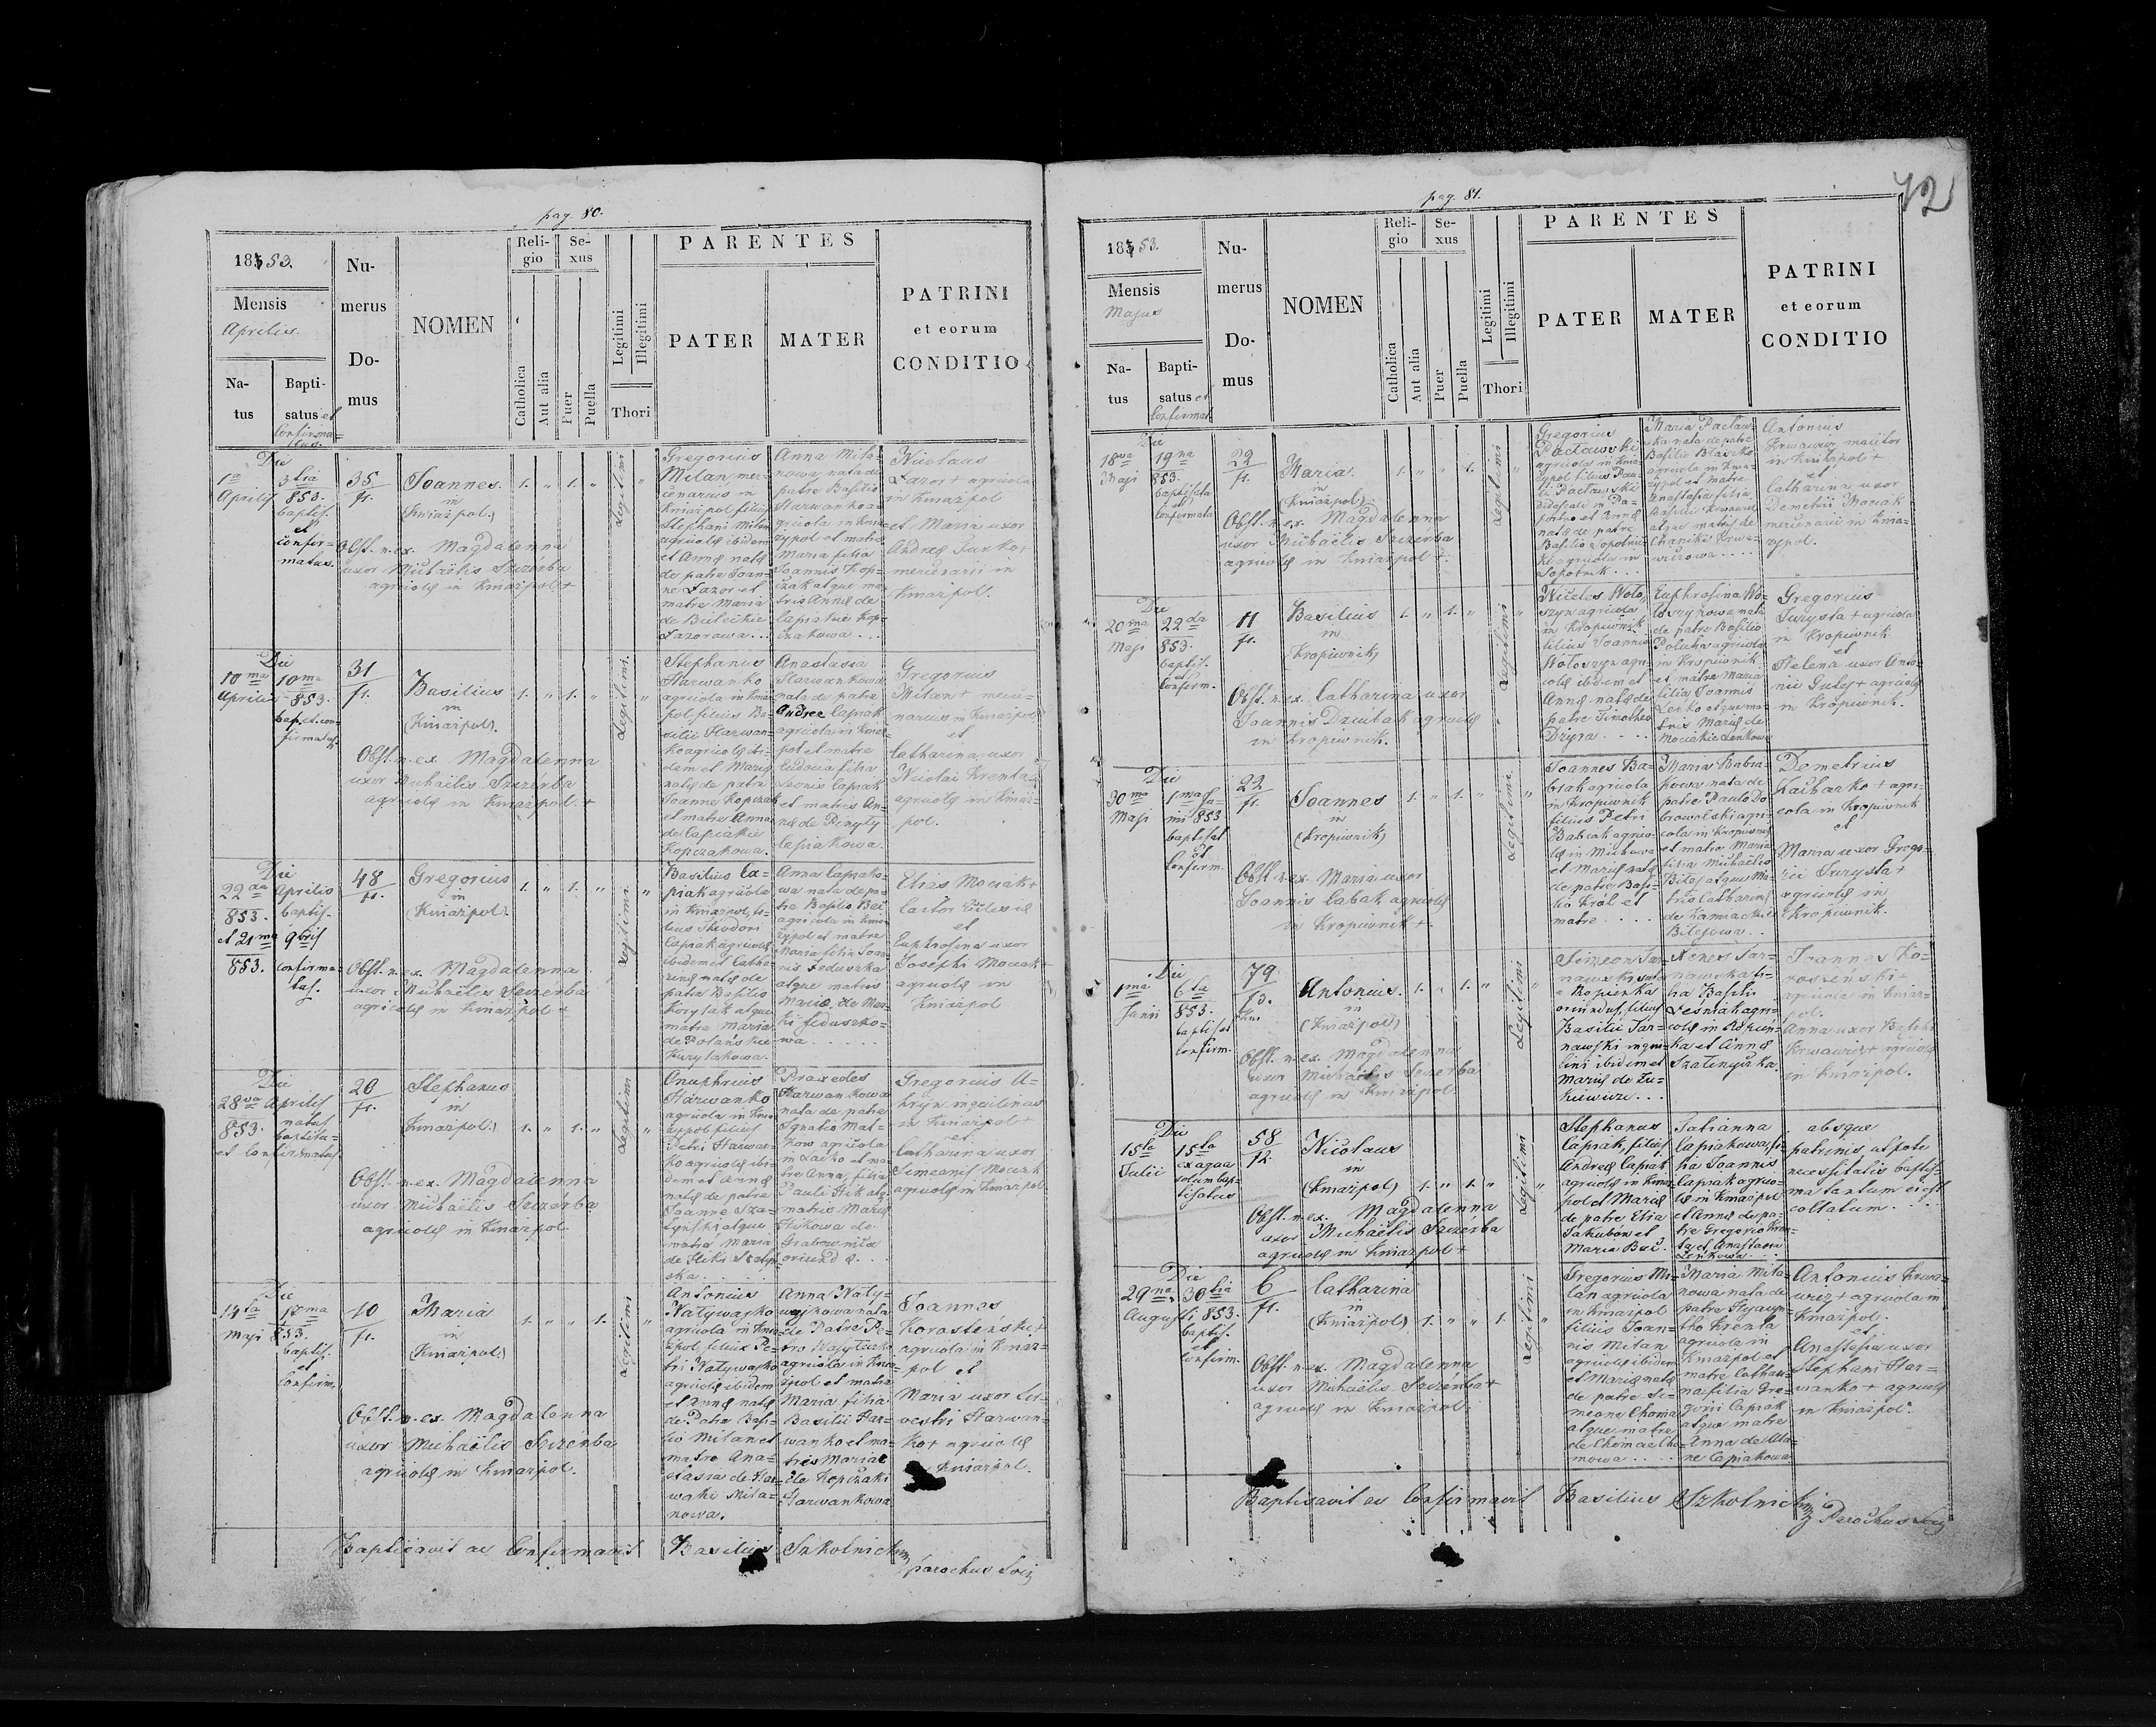 pag. 80.
1853.
Mensis
Aprilis.
Na-
tus
Bapti-
satus et
Confirma-
tus.
Nu-
merus
Do-
mus
NOMEN
Reli-
gio
Catholica
Aut alia
Se-
xus
Puer
Puella
Legitimi
Illegitimi
Thori
PARENTES
PATER
MATER
PATRINI
et eorum
CONDITIO
Die
1a 3tia
Aprilis 853.
baptis.
et
confir-
matus.
35
fr.
Joannes.
in
(Kniażpol.)
1. " 1. "
Legitimi
"
Obst. n. ex. Magdalenna
uxor Michaëlis Szczerba
agricolę in Kniażpol +
Gregorius
Milan, mer-
cenarius in
Kniażpol filius
Stephani Milan
agricolę ibidem
et Annę natę
de patre Joan-
ne Łazor et
matre Maria
de
Łazorowa...
Anna Mila-
nowa, nata de
patre Basilio
Harwanko a-
gricola in Knia-
żpol et matre
Maria filia
Joannis Kop-
czak atque ma-
tris Annę de
Capiakie Kop-
czakowa...
Nicolaus
Łazor + agricola
in Kniażpol
et Maria uxor
Andreę Jurko +
mercenarii in
Kniażpol.
Die
10ma 10ma
Aprilis 853.
bap. et con-
firmatus.
31
fr.
Basilius
in
(Kniażpol).
1. " 1. "
Legitimi.
"
Obst. n. ex. Magdalenna
uxor Michaëlis Szczerba
agricolę in Kniażpol. +
Stephanus
Harwanko
agricola in Knia-
pol filius Ba-
silii Harwan-
ko agricolę ibi-
dem et Marię
natę de patre
Joanne Kopczak
et matre Anna
de Capiakie
Kopczakowa.
Anastasia
Harwankowa
nata de patre
Andrea Capiak
agricola in Kniaż-
pol et matre
Eudocia filia
Leonis Capiak
et matris An-
nę de
Capiakowa.
Gregorius
Milan + merce-
narius in Kniażpol
et
Catharina uxor
Nicolai Krenta
agricolę in Kniaż-
pol.
Die
22da Aprilis
853. baptis.
et 21ma 9bris
853. confirma-
tus.
48
fr.
Gregorius
in
(Kniażpol).
1. " 1. "
Legitimi
"
Obst. n. ex. Magdalenna
uxor Michaëlis Szczerba
agricolę in Kniażpol +
Basilius Ca-
piak agricola
in Kniażpol, fi-
lius Theodori
Capiak agricolę
ibidem et Catha-
rinę natę de
patre Basilio
Korytak atque
matre Maria
de Polańskie
Kurylakowa.
Anna Capiako-
wa nata de pa-
tre Basilio Bać
agricola in Knia-
żpol et matre
Maria filia Joan-
nis Feduszka
atque matris
Marię de Mar-
ki Feduszko-
wa......
Elias Mociak +
Cantor Ecclesię
et
Euphrosina uxor
Josephi Mociak +
agricolę in
Kniażpol
Die
28va Aprilis
853. natus
baptisa-
et confirmatus
20
fr.
Stephanus
in
Kniażpol.)
1. " 1. "
Legitimi
"
Obst. n. ex. Magdalenna
uxor Michaëlis Szczerba
agricolę in Kniażpol.
Onuphrius
Harwanko
agricola in Knia-
żpol filius
Petri Harwan-
ko agricolę ibi-
dem et Annę
natę de patre
Joanne Sza-
atque
matre Maria
de
ska.
Praxedes
Harwankowa
nata de patre
Ignatio Mal-
kow agricola
in Lacko et ma-
tre Anna, filia
Pauli Hik atq.
matris Marię
Hikowa de
Grabownica
oriundę...
Gregorius
inquilinus
in Kniażpol +
et
Catharina uxor
Simeonis Mociak
agricolę in Kniażpol.
Die
14ta
Maji 853.
baptis.
et
Confirm.
10
fr.
Maria
in
(Kniażpol.)
1. " " 1.
Legitimi
"
Obst. n. ex. Magdalenna
uxor Michaëlis Szczerba
agricolę in Kniażpol.
Antonius
Natywajko
agricola in Knia-
żpol filius Pe-
tri Natywajko
agricolę ibidem
et Annę natę
de Patre Basi-
lio Milan et
matre Ana-
stasia de Har-
waki Mila-
nowa.
Anna Naty-
wajkowa nata
de Patre Pe-
tro
agricola in Knia-
żpol et matre
Maria filia
Basilii Har-
wanko et ma-
tris Mariae
de Kopczaki
Harwankowa
Joannes
Korosteński +
agricola in Kniaż-
pol et
Maria uxor
Harwan-
ko + agricolę
Kniażpol.
Baptisavit ac Confirmavit Basilius Szkolnicki
parochus Loci
pag. 81.
72
1853.
Mensis
Majus
Na-
tus
Bapti-
satus et
Confirmat.
Nu-
merus
Do-
mus
NOMEN
Reli-
gio
Catholica
Aut alia
Se-
xus
Puer
Puella
Legitimi
Illegitimi
Thori
PARENTES
PATER
MATER
PATRINI
et eorum
CONDITIO
Die
18va 19na
Maji 853.
baptisata
et
Confirmata
22
fr.
Maria.
in
(Kniażpol).
1. " " 1.
Legitimi
"
Obst. n. ex. Magdalenna
uxor Michaëlis Szczerba
agricolę in Kniażpol +.
Gregorius
Pacławski
agricola in Knia-
żypol filius Pau-
li Pacławski
in Pa-
et Annę
natę de patre
Basilio Sopotnic-
ki agricola in
Sopotnik...
Maria Pacław-
ska nata de patre
Basilio Błaszko
agricola in Knia-
żypol et matre
Anastasia filia
Basilii Krwawicz
atque matris de
Krwa-
wiczowa.....
Antonius
Krwawicz
in Kniażpol +
et
Catharina uxor
Demetrii Mociak
mercenarii in Knia-
żypol.
Die
20ma 22da
Maji 853.
baptis.
et
Confirm.
11
fr.
Basilius
in
(Kropiwnik)
1. " 1. "
Legitimi
"
Obst. n. ex. Catharina uxor
Joannis Dziubak agricolę
in Kropiwnik.
Nicolaus Woło-
szyn agricola
in Kropiwnik
filius Joannis
Wołoszyn agri-
colę ibidem et
Annę natę de
patre Timotheo
Euphrosina Wo-
łoszynowa nata
de patre Basilio
Połucha agricola
in Kropiwnik
et matre Maria
filia Joannis
Lenko atque ma-
tris Marię de
Mociakie Lenkowa
Gregorius
Juzysta + agricola
in Kropiwnik
et
Helena uxor Anto-
nii + agricolę
in Kropiwnik.
Die
30ma 1ma Ju-
Maji nii 853
baptisat
et
Confirm.
22
fr.
Joannes
in
(Kropiwnik)
1. " 1. "
Legitimi
"
Obst. n. ex. Maria uxor
Joannis Cabak agricolę
in Kropiwnik +.
Joannes Ba-
biak agricola
in Kropiwnik
filius Petri
Babiak agrico-
lę in Michowa
et Marię natę
de patre Basi-
lio Król et
matre.....
Maria Babia-
kowa nata de
patre Paulo Do-
browolski agri-
cola in Kropiwnik
et matre Maria
filia Michaëlis
Bilej atque ma-
tris Catharinę
de
Bilejowa..
Demetrius
+ agri-
cola in Kropiwnik
et
Maria uxor Grego-
rii Juzysta +
agricolę in
Kropiwnik.
Die
1ma 6ta
Junii 853.
baptisat
Confirm.
79
Antonius.
in
(Kniażpol)
1. " 1. "
Legitimi
"
Obst. n. ex. Magdalenna
uxor Michaëlis Szczerba
agricolę in Kniażpol.
Simeon Tar-
nawski
e Ropienka
oriundus, filius
Basilii Tar-
nawski inqui-
lini ibidem et
Marię de Łu-
kiewicze...
Agnes Tar-
nawska fi-
lia Basilii
Leśniak agri-
colę in Ropien-
ka et Annę
Joannes Ko-
rosteński +
agricola in Kniaż-
pol.
Anna uxor Basilii
Krwawicz + agricolę
in Kniażpol.
Die
15ta 15ta
Julii ex aqua
solum bap-
tisatus
58
12.
Nicolaus
in
(Kniażpol)
1. " 1. "
Legitimi
"
Obst. n. ex. Magdalenna
uxor Michaëlis Szczerba
agricolę in Kniażpol +
Stephanus
Capiak, filius
Andreę Capiak
agricolę in Kniaż-
pol et Marię
de patre Elia
Jakubów et
Maria Bać.
Tatianna
Capiakowa, fi-
lia Joannis
Capiak agrico-
lę in Kniażpol
et Annę de pa-
tre Gregorio Kren-
ta et Anastasia
Lenkowa...
absque
patrinis, utpote
necessitatis baptis-
ma tantum ei est
collatum....
Die
29na 30tia
Augusti 853.
baptis.
et
Confirm.
6
fr.
Catharina
in
(Kniażpol)
1. " " 1.
Legitimi
"
Obst. n. ex. Magdalenna
uxor Michaëlis Szczerba +
agricolę in Kniażpol.
Gregorius Mi-
lan agricola
in Kniażpol
filius Joan-
nis Milan
agricolę ibidem
et Marię natę
de patre Si-
meone Choma
atque matre
de Chomae Cho-
mowa....
Maria Mila-
nowa nata de
patre Hyacyn-
tho Krenta
agricola in
Kniażpol et
matre Catha-
rina filia Gre-
gorii Capiak
atque matre
Anna de
Capiakowa
Antonius Krwa-
wicz + agricola in
Kniażpol.
et
Anastasia uxor
Stephani Har-
wanko + agricolę
in Kniażpol.
Baptisavit ac Confirmavit Basilius Szkolnicki
Parochus Loci